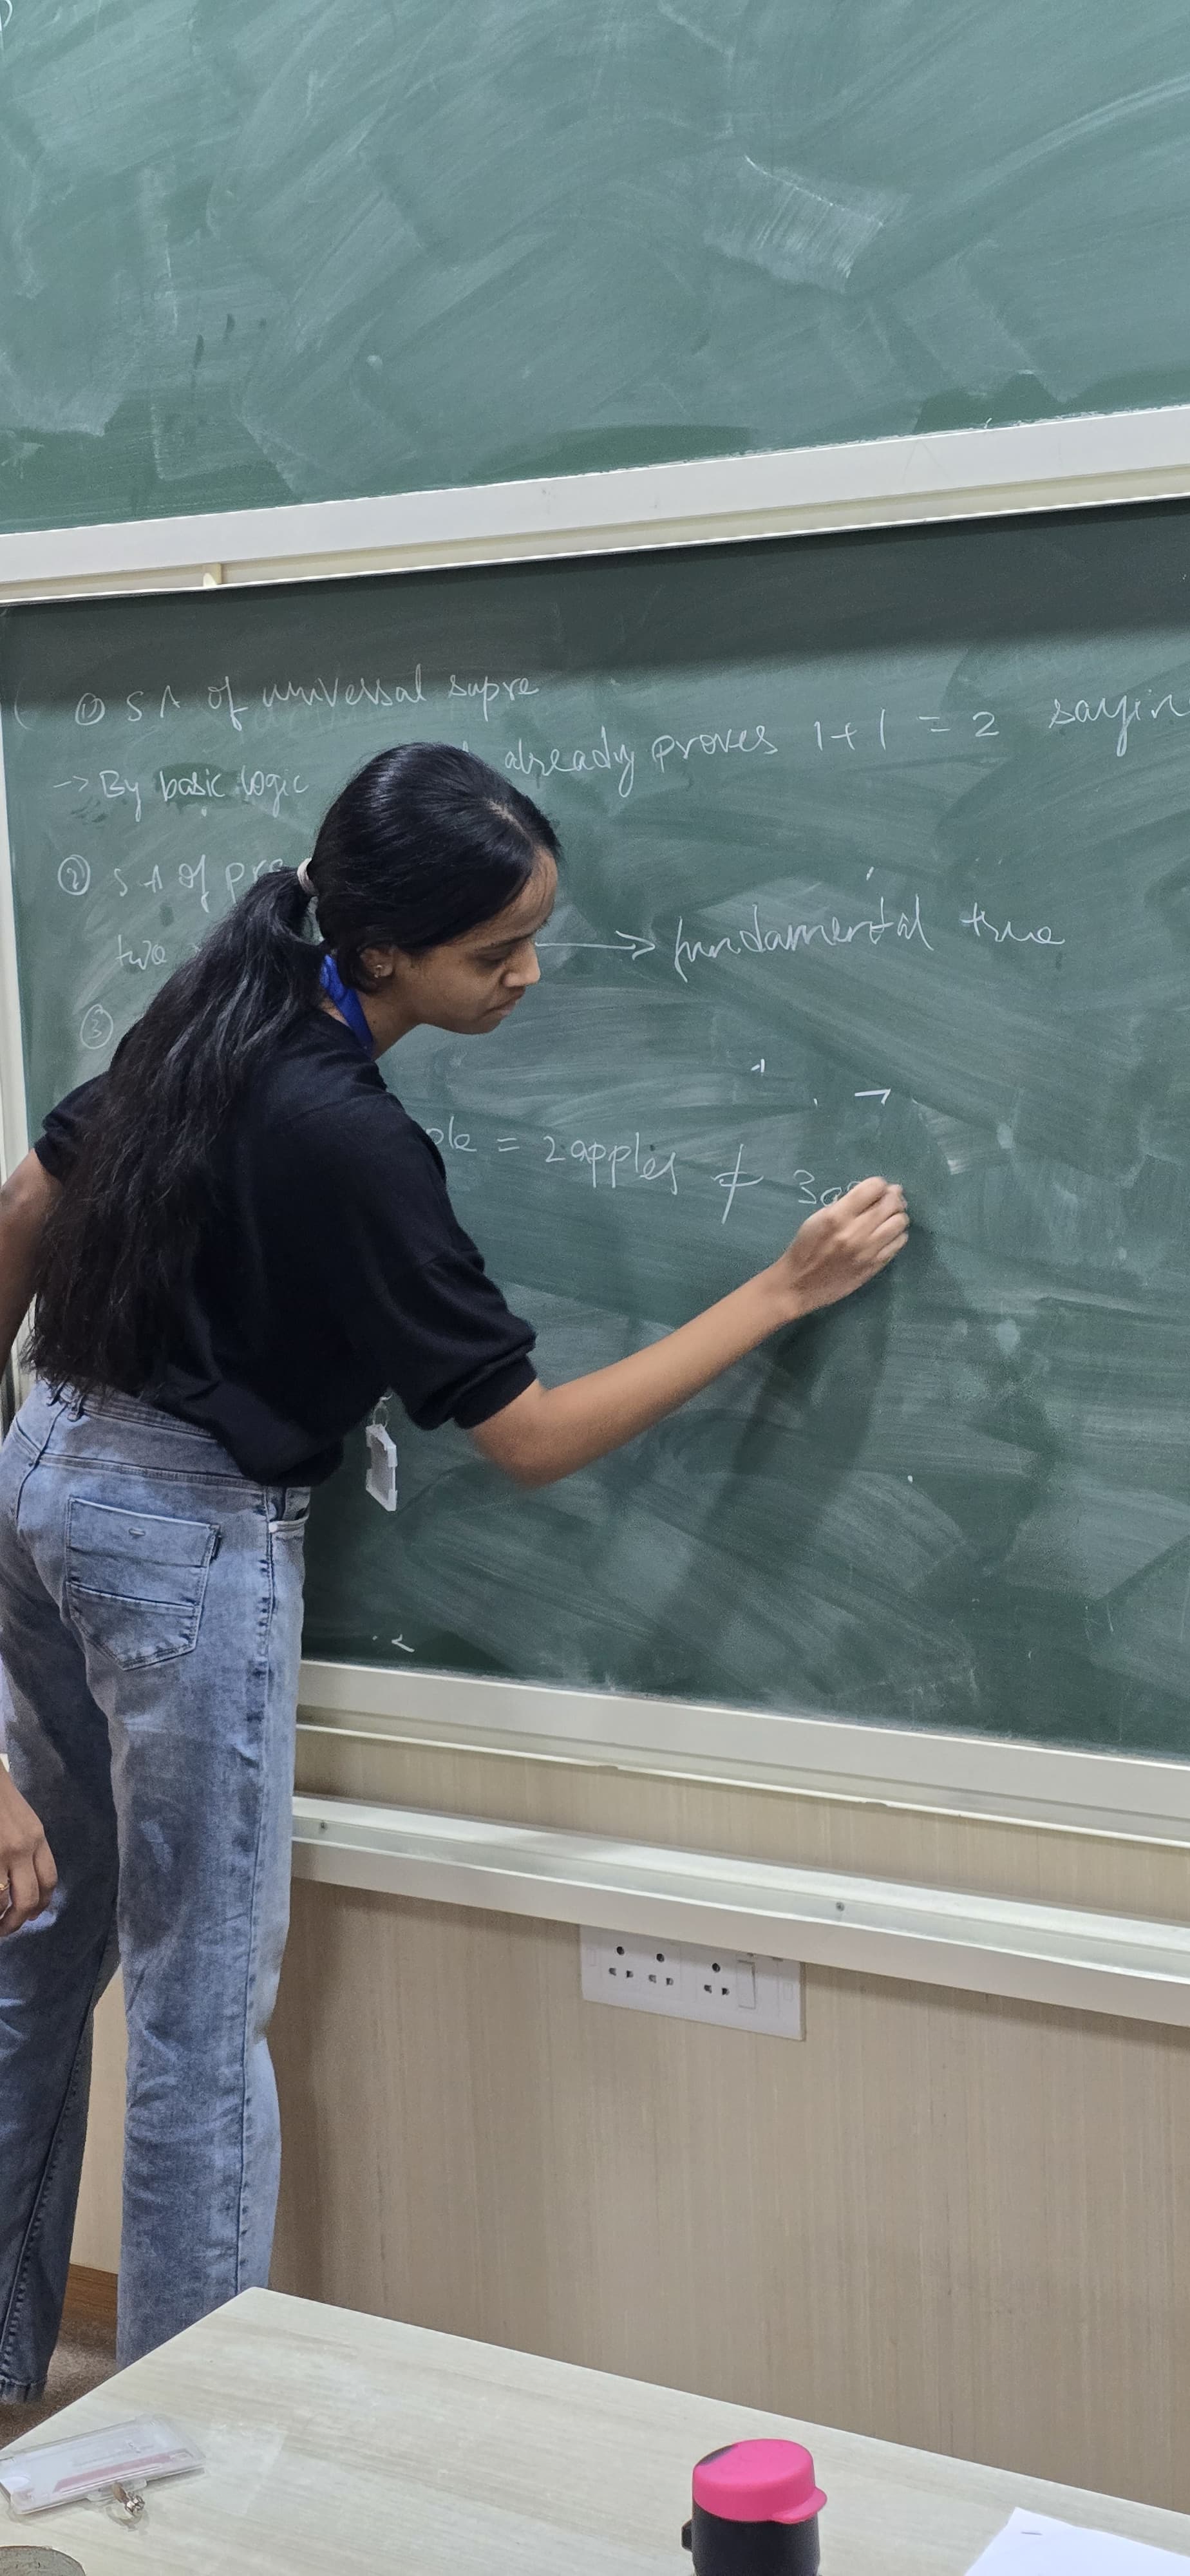 ① S A of universal supre
-> By basic logic already proves 1+1 = 2 sayin
② S A of pr
two → fundamental true
③
ple = 2 apples ≠ 3 a